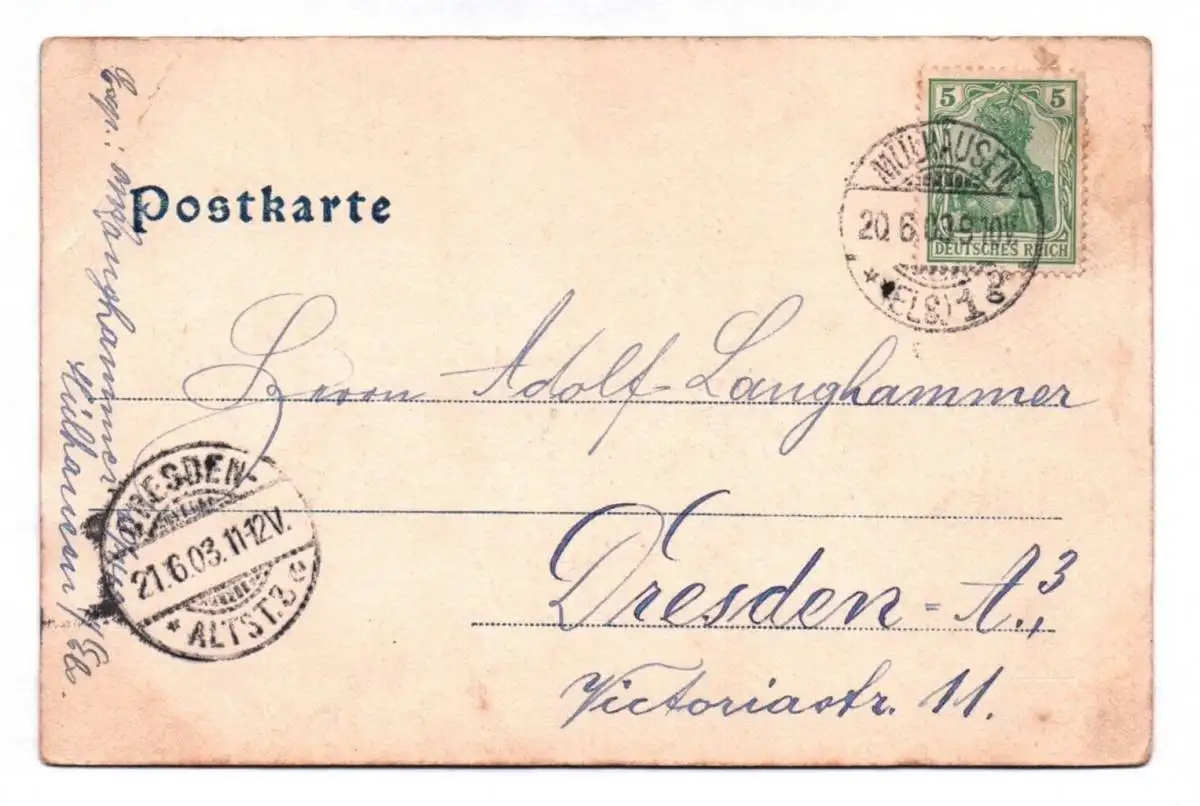 Postkarte
5 5
DEUTSCHES REICH
MÜLHAUSEN
20.6.03.9-10V.
* (ELS) 1 *
Herrn Adolf Langhammer
Dresden-A.3,
Victoriastr. 11.
DRESDEN-
21.6.03.11-12V.
* ALTST. 3 e
Langhammer
Mülhausen i/Els.